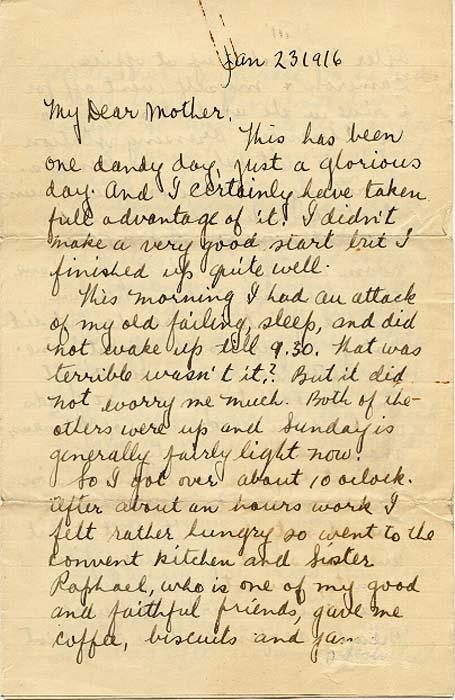 Jan 23 1916
My Dear Mother,
This has been
one dandy day, just a glorious
day. And I certainly have taken
full advantage of it. I didn't
make a very good start but I
finished up quite well.
This morning I had an attack
of my old failing, sleep, and did
not wake up till 9.30. That was
terrible wasn't it? But it did
not worry me much. Both of the
others were up and Sunday is
generally fairly light now.
So I got over about 10 oclock.
After about an hours work I
felt rather hungry so went to the
convent kitchen and Sister
Raphael, who is one of my good
and faithful friends, gave me
coffee, biscuits and jam